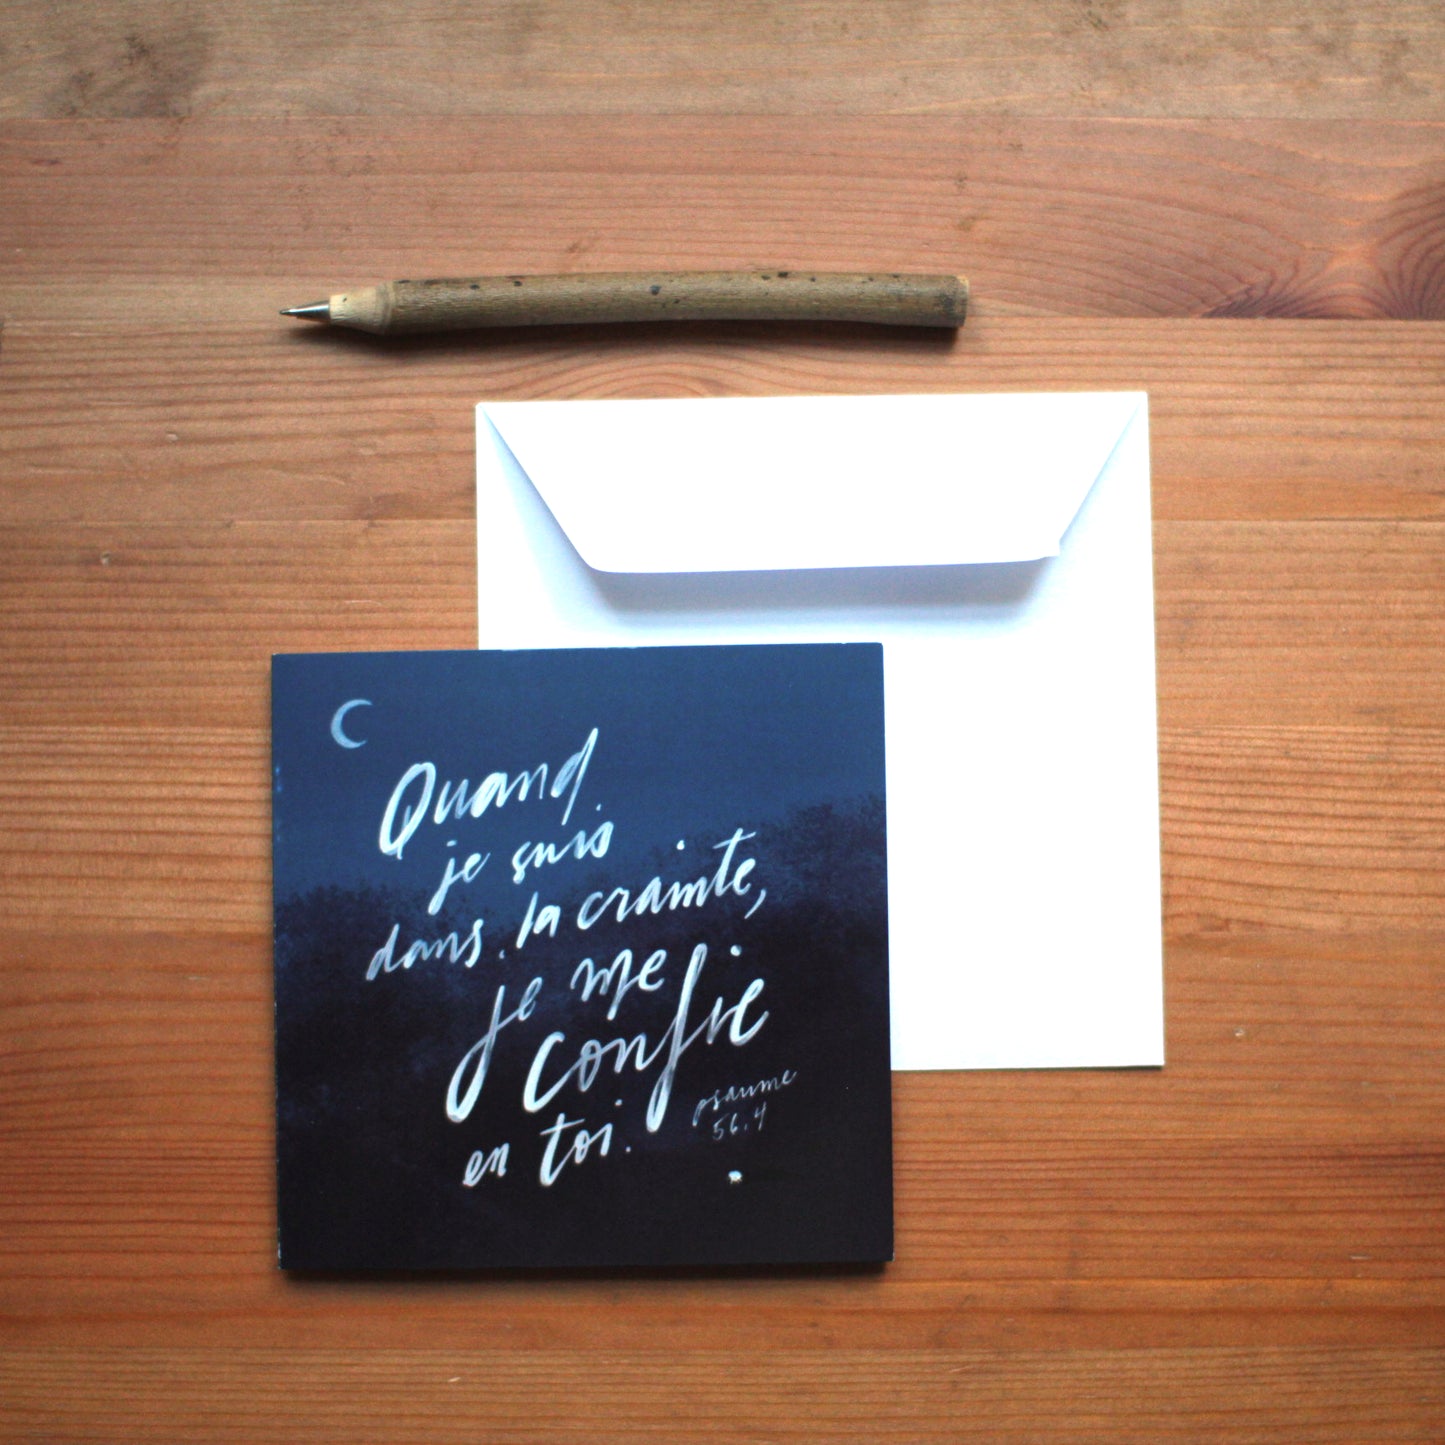 Quand
je suis
dans la crainte,
je me
confie
en toi.
psaume
56.4